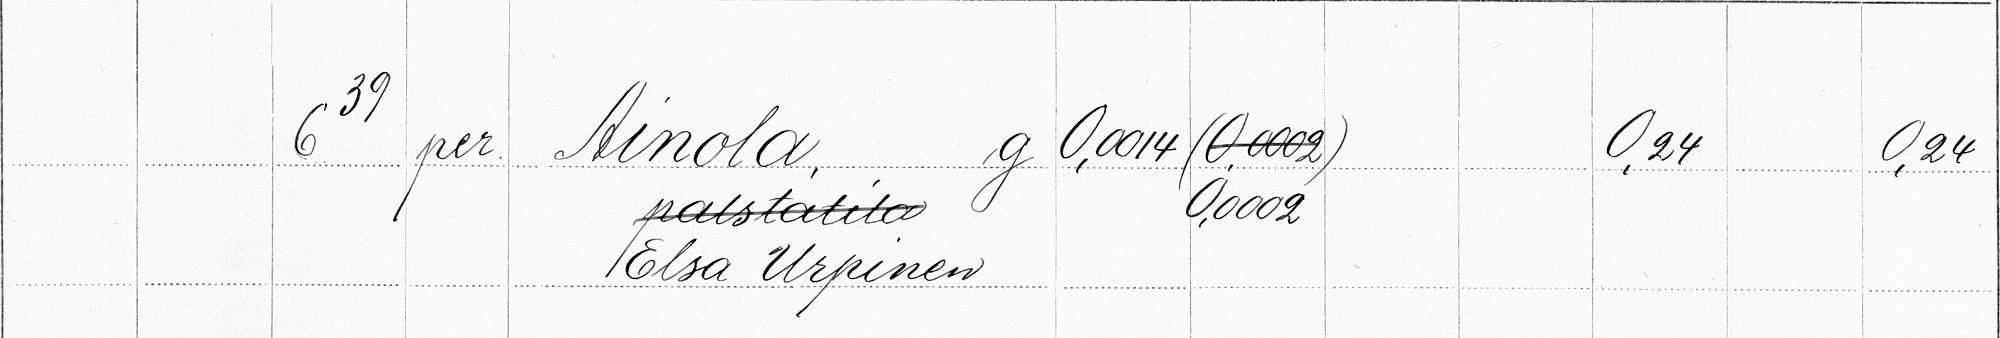 6 39 per. Ainola, g 0,0014 (0,0002) 0,24 0,24
palstatila 0,0002
Elsa Urpinen